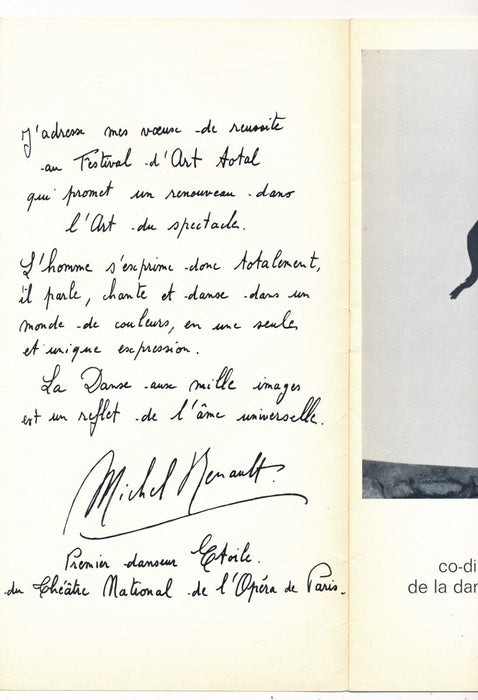 J'adresse mes voeux de reussite
au Festival d'Art total
qui promet un renouveau dans
l'Art du spectacle.
L'homme s'exprime donc totalement,
il parle, chante et danse dans un
monde de couleurs, en une seule
et unique expression.
La Danse aux mille images
est un reflet de l'âme universelle.
Michel Renault
Premier danseur Etoile.
du Théâtre National de l'Opéra de Paris.
co-di
de la dan